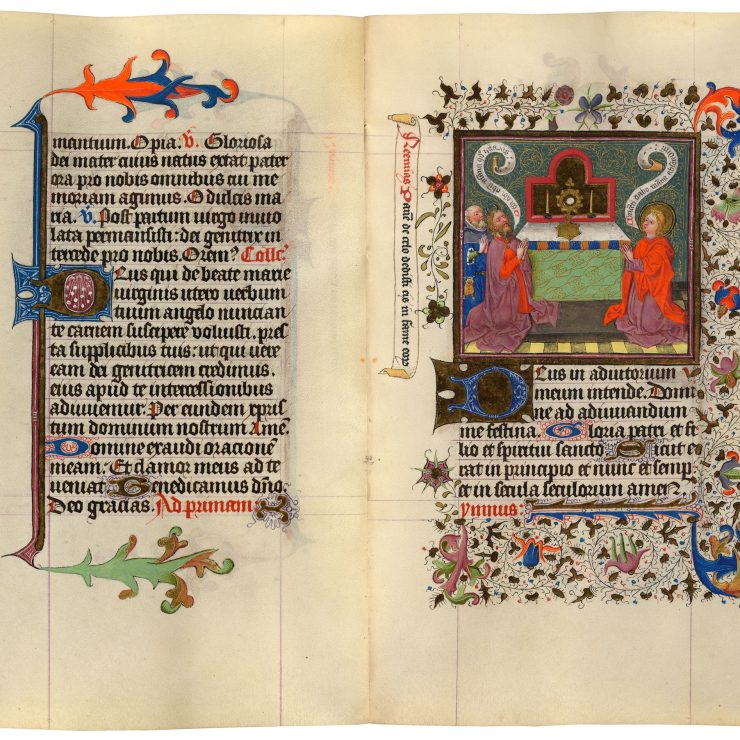 mentium. O pia. v̄. Gloriosa
dei mater cuius natus extat pater
ora pro nobis omnibus qui me
moriam agimus. O dulcis ma
ria. v̄. Post partum uirgo inuio
lata permansisti: dei genitrix in
tercede pro nobis. Orem? Collc̄
Deus qui de beate marie
uirginis utero uerbum
tuum angelo nuncian
te carnem suscipere voluisti. pres
ta supplicibus tuis: ut qui uere
eam dei genitricem credimus.
eius apud te intercessionibus
adiuuemur. Per eundem xpris
tum dominum nostrum Amē.
Domine exaudi orationē
meam. Et clamor meus ad te
ueniat Benedicamus dn̄o.
Deo gracias. Ad primam
Neemias Panē de celo dedisti eis in fame eorū
Deus in adiutorium
meum intende. Domi
ne ad adiuuandum
me festina. Gloria patri et fi
lio et spiritui sancto Sicut e
rat in principio et nunc et semp
et in secula seculorum amen.
ymnus: